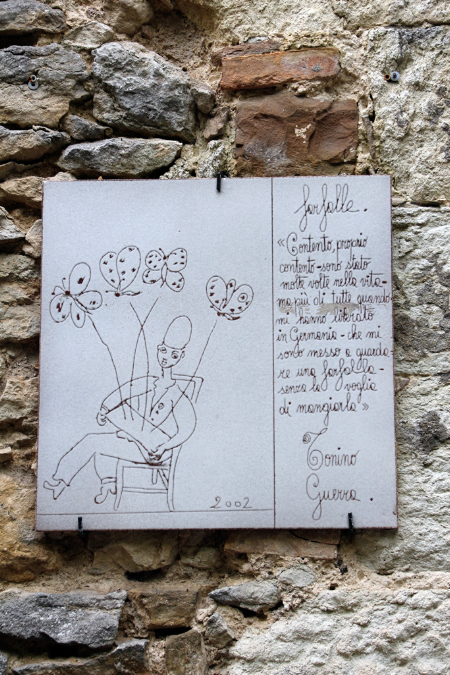 farfalle.
«Contento, proprio
contento - sono stato
molte volte nella vita -
ma più di tutte quando
mi hanno liberato
in Germania - che mi
sono messo a guarda-
re una farfalla -
senza la voglia
di mangiarla»
Tonino
Guerra.
2002